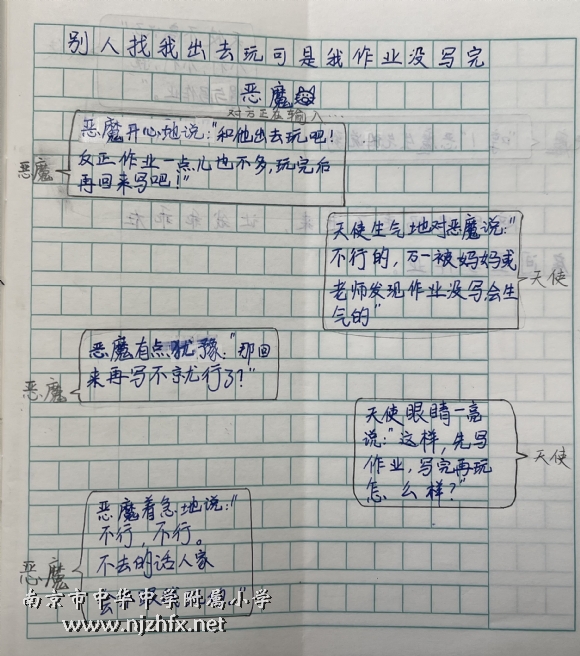 别人找我出去玩可是我作业没写完
恶魔
对方正在输入…
恶魔开心地说："和他出去玩吧！
反正作业一点儿也不多，玩完后
再回来写吧！"
恶魔
天使生气地对恶魔说："
不行的，万一被妈妈或
老师发现作业没写，会生
气的"
天使
恶魔有点犹豫："那回
来再写不就行了？"
恶魔
天使眼睛一亮
说："这样，先写
作业，写完再玩
怎么样？"
天使
恶魔着急地说："
不行，不行。
不去的话人家
会
恶魔
南京市中华中学附属小学
www.njzhfx.net